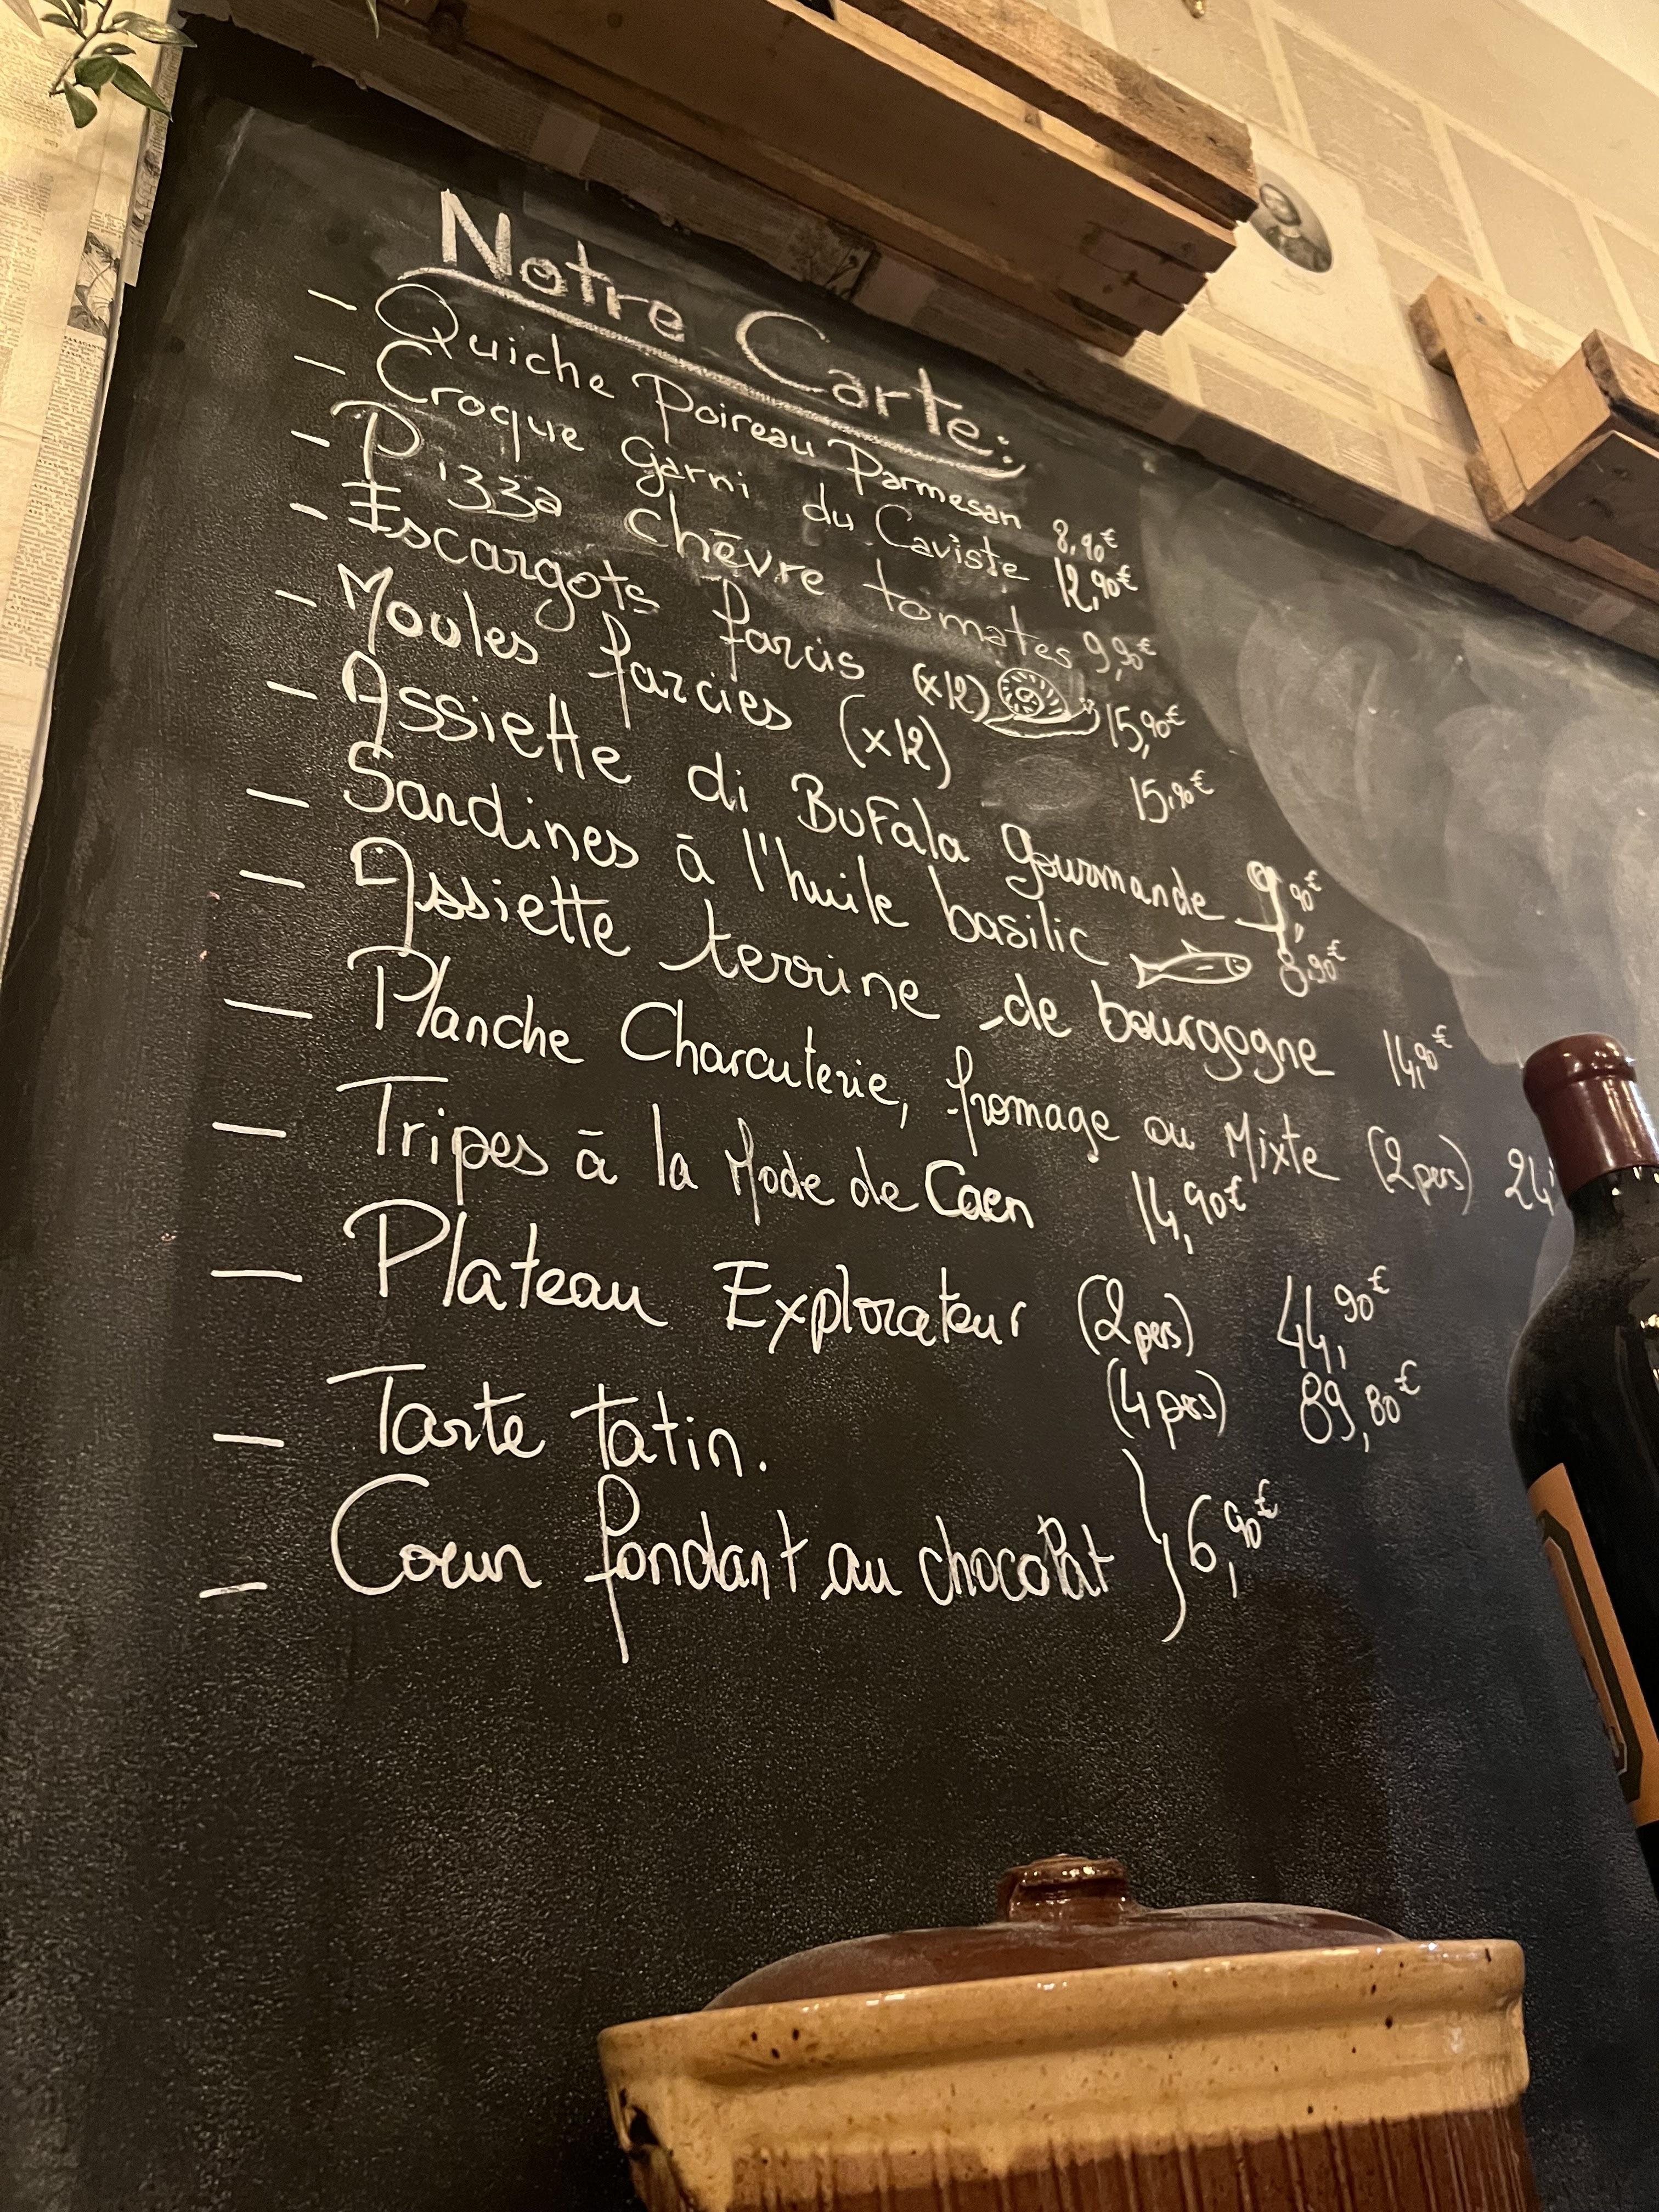 Notre Carte:
- Quiche Poireau Parmesan 8,90€
- Croque garni du Caviste 12,90€
- Pizza chèvre tomates 9,90€
- Escargots farcis (x12) 15,90€
- Moules farcies (x12) 15,90€
- Assiette di Bufala gourmande 9,90€
- Sardines à l'huile basilic 8,90€
- Assiette terrine de bourgogne 14,90€
- Planche Charcuterie, fromage ou Mixte (2 pers) 24,
- Tripes à la Mode de Caen 14,90€
- Plateau Explorateur (2 pers) 44,90€
(4 pers) 89,80€
- Tarte tatin.
- Coeur fondant au chocolat } 6,90€